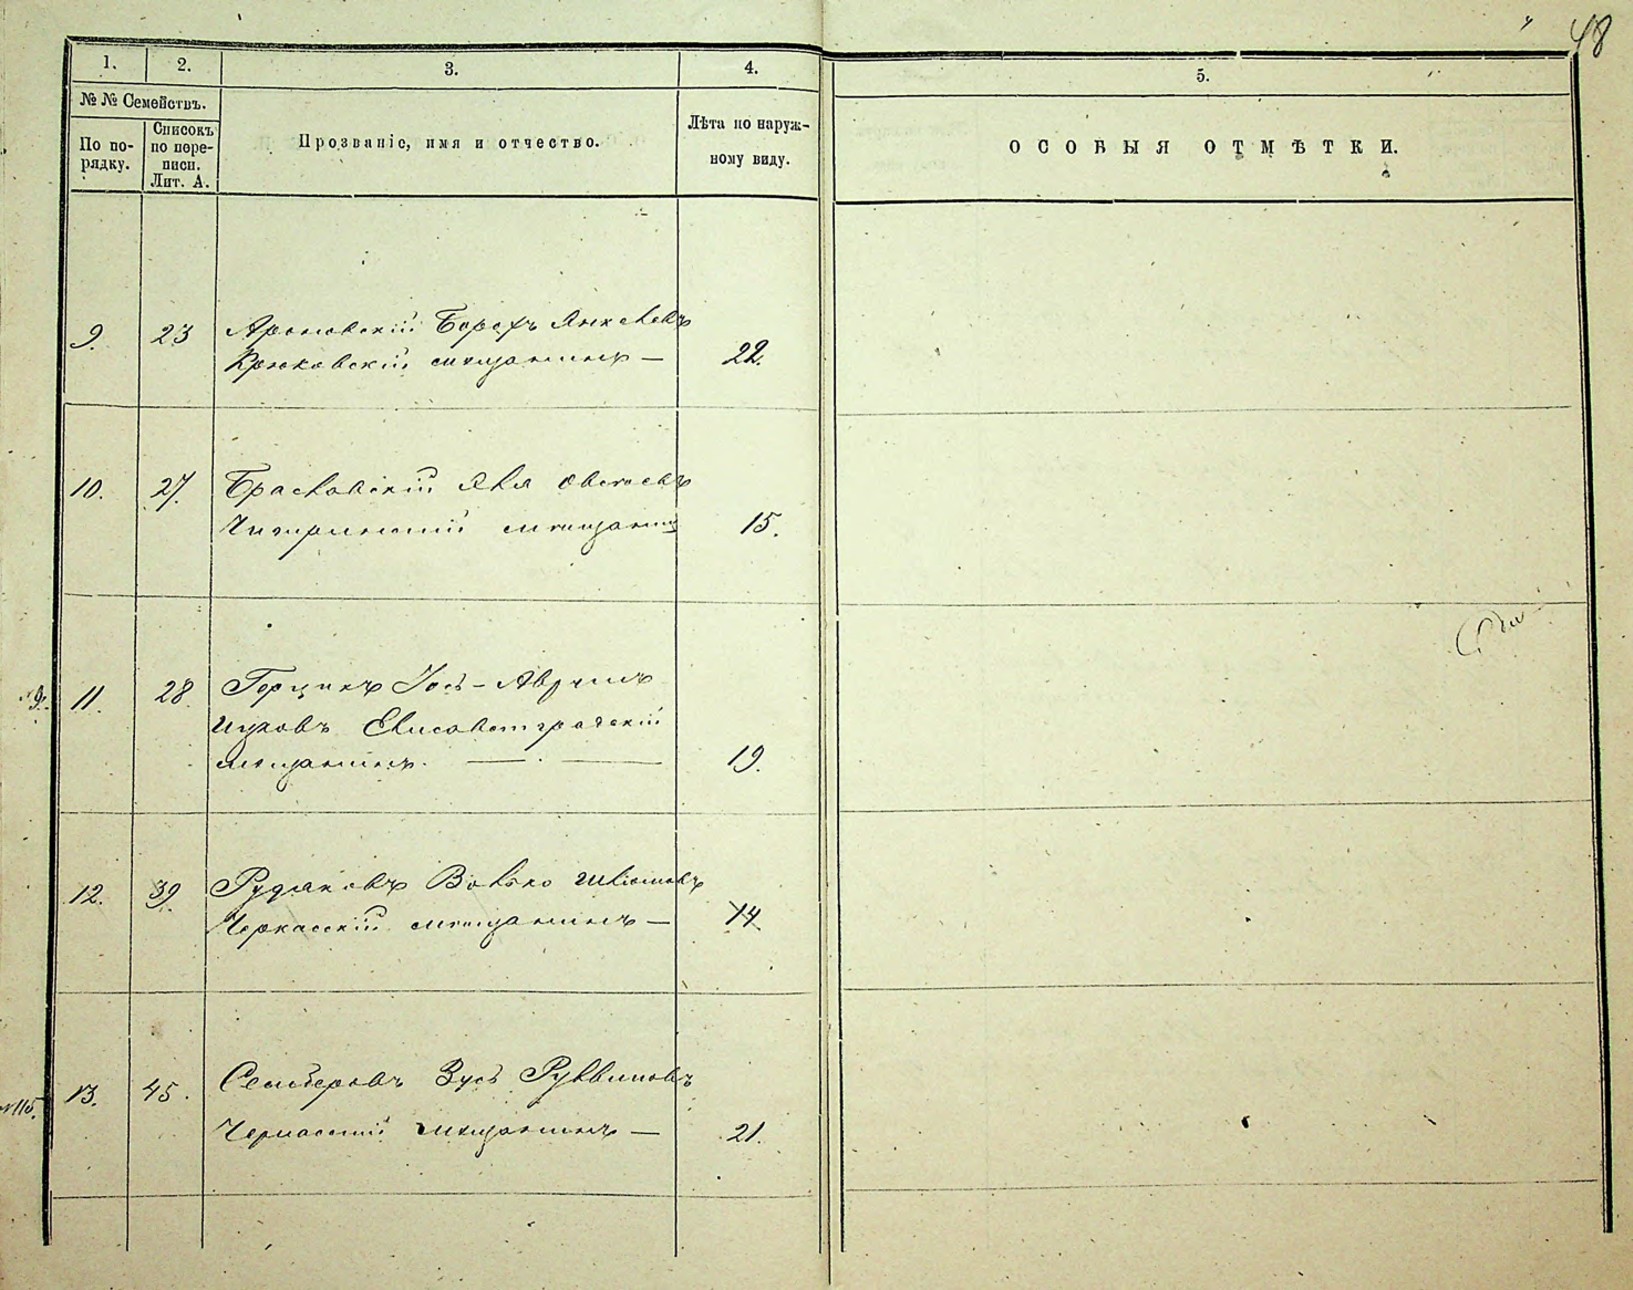 48
1. 2. 3. 4. 5.
№ № Семействъ.
По по-
рядку.
Списокъ
по пере-
писи.
Лит. А.
Прозваніе, имя и отчество.
Лѣта по наруж-
ному виду.
ОСОБЫЯ ОТМѢТКИ.
9. 23 Ароновскій Борохъ Янкелевъ
Крюковскій мѣщанинъ — 22.
10. 27. Браславскій
Чигиринскій мѣщанинъ 15.
11. 28. Герцикъ Іось-Аврумъ
Ицковъ Елисаветградскій
мѣщанинъ. — 19.
12. 39. Рудаковъ Волько Шліомовъ
Черкасскій мѣщанинъ — 14.
13. 45. Семберовъ Зусь Рувиновъ
№ 115.
Черкасскій мѣщанинъ — 21.